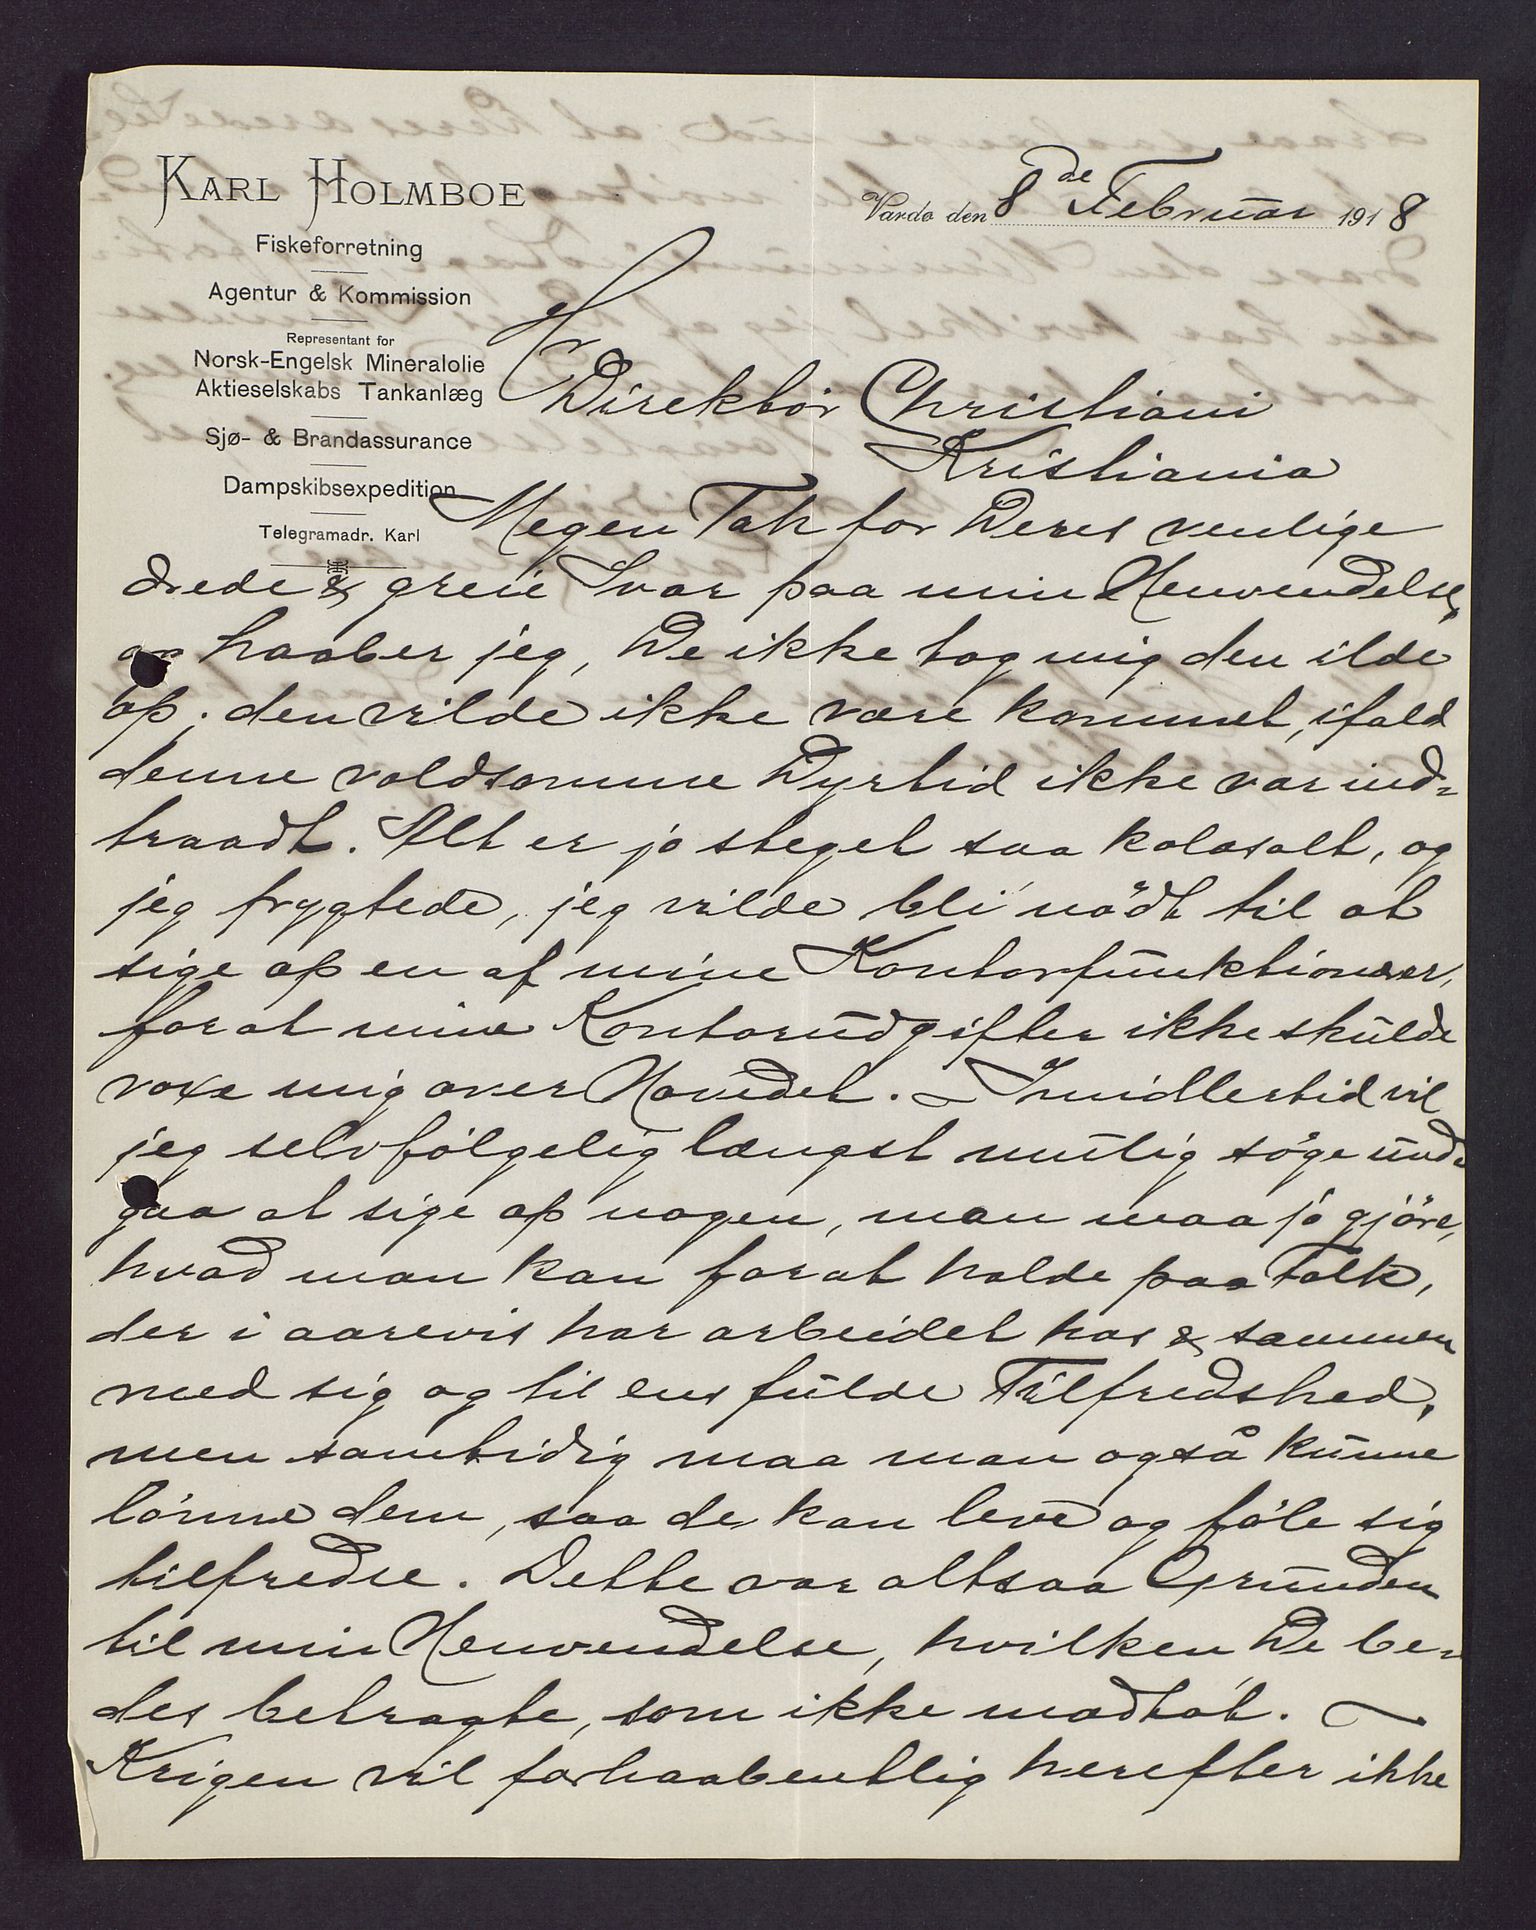 KARL HOLMBOE
Fiskeforretning
Agentur & Kommission
Representant for
Norsk-Engelsk Mineralolie
Aktieselskabs Tankanlæg
Sjø- & Brandassurance
Dampskibsexpedition
Telegramadr. Karl
Vardø den 8de Februar 1918
Hr
Direktör Christiani
Kristiania
Megen Tak for Deres venlige
& greie Svar paa min Henvendelse,
og haaber jeg, De ikke tog mig den ilde
op; den vilde ikke være kommet, ifald
denne voldsomme Dyrtid ikke var ind-
traadt. Alt er jo steget saa kolosalt, og
jeg frygtede, jeg vilde bli nödt til at
sige op en af mine Kontorfunktionærer,
forat mine Kontorudgifter ikke skulde
voxe mig over Hovedet. – Imidlertid vil
jeg selvfölgelig længst mulig söge und-
gaa at sige op nogen, man maa jo gjöre,
hvad man kan forat holde paa Folk,
der i aarevis har arbeidet hos & sammen
med sig og til ens fulde Tilfredshed,
men samtidig maa man også kunne
lönne dem, saa de kan leve og föle sig
tilfredse. Dette var altsaa Grunden
til min Henvendelse, hvilken De be-
des betragte, som ikke modtat. –
Krigen vil forhaabentlig herefter ikke